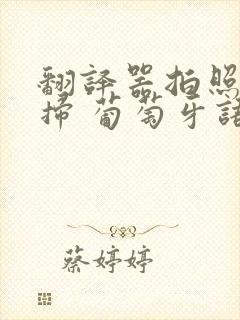 翻譯器拍照
掃 葡萄牙語
蔡婷婷